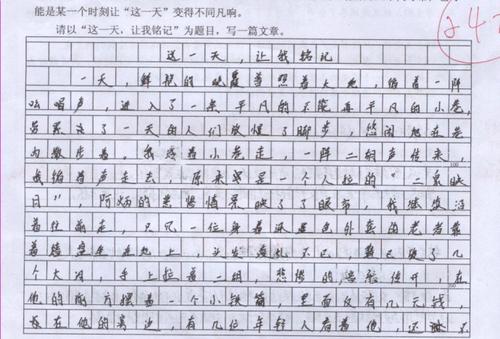 能是某一个时刻让“这一天”变得不同凡响。
请以“这一天，让我铭记”为题目，写一篇文章。
24
这一天，让我铭记
一天，鲜艳的晚霞普照着大地，伴着一阵
吆唱声，进入了一条平凡的不能再平凡的小巷，
劳累了一天的人们放慢了脚步，悠闲地在巷
内散步着。我沿着小巷走，一阵二胡声传来，
100
我循着声走去，原来是一个人拉的“二泉映
月”，阿炳的悲惨情景映了了眼帘，我继续沿
着往前走，只见一位身着深蓝色外套的老者靠
着墙坐在地上，头发凌乱不已，鞋已破了几
个大洞，手上拉着二胡，悲惨的音乐传开，在
他的前方摆着一个小铁筒，里面仅有几元钱，
站在他的旁边，有几位年轻人看着他，还